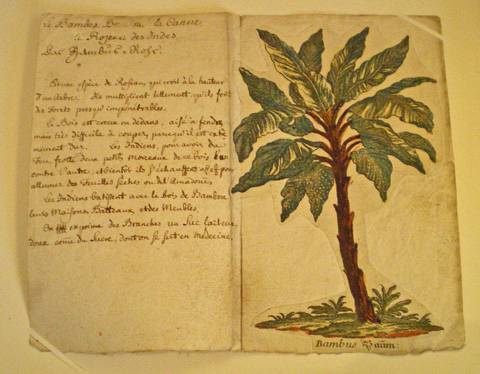 le Bambou Ou la Canne
à Rozeaux des Indes
Le Bambus-Rohr.
Grosse espèce de Roseau, qui croit à la hauteur
d'un Arbre. Ils multiplient tellement, qu'ils font
des Forets presqu'impénétrables.
Le Bois est creux en dedans, aisé à fendre,
mais très difficile à couper, parcequ'il est extrê
mement dur. Les Indiens, pour avoir du
Feu, frotte deux petits Morceaux de ce bois l'un
contre l'autre, et bientôt ils s'échauffent assez pour
allumer des Feuilles séches ou de l'Amadoue.
Les Indiens batissent avec le bois de Bambou
leurs Maisons, Batteaux, et des Meubles,
On exprime des Branches un Suc laiteux,
doux come du Sucre, dont on se sert en Medecine.
Bambus Baum.